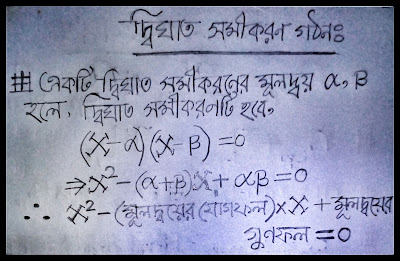 দ্বিঘাত সমীকরণ গঠনঃ
# একটি দ্বিঘাত সমীকরণের মূলদ্বয় α, β
হলে, দ্বিঘাত সমীকরণটি হবে,
(x-α)(x-β)=0
⇒x²-(α+β)x+αβ=0
∴ x²-(মূলদ্বয়ের যোগফল)×x+মূলদ্বয়ের
গুণফল=0